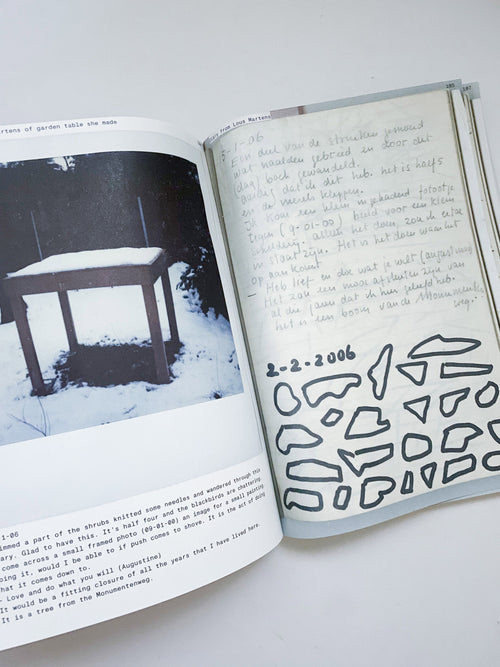 rtens of garden table she made
1-06
immed a part of the shrubs knitted some needles and wandered through this
ary. Glad to have this. It's half four and the blackbirds are chattering.
come across a small framed photo (09-01-00) an image for a small painting
oing it, would I be able to if push comes to shove. It is the act of doing
hat it comes down to.
- Love and do what you will (Augustine)
It would be a fitting closure of all the years that I have lived here.
It is a tree from the Monumentenweg.
from Lous Martens
185
187
5-1-06
Een deel van de struiken gesnoeid
wat naalden gebreid en door dit
dagboek gewandeld.
dat ik dit heb. het is half 5
en de merels kleppen.
Ik kom een klein ingekaderd fotootje
tegen (9-01-00) beeld voor een klein
schilderij. alleen het doen, zou ik ertoe
in staat zijn. Het is het doen waar het
op aan komt.
— Heb lief en doe wat je wilt (Augus)
Het zou een mooi afsluiten zijn van
al die jaren dat ik hier geleefd heb.
het is een boom van de Monumenten
weg.
2-2-2006